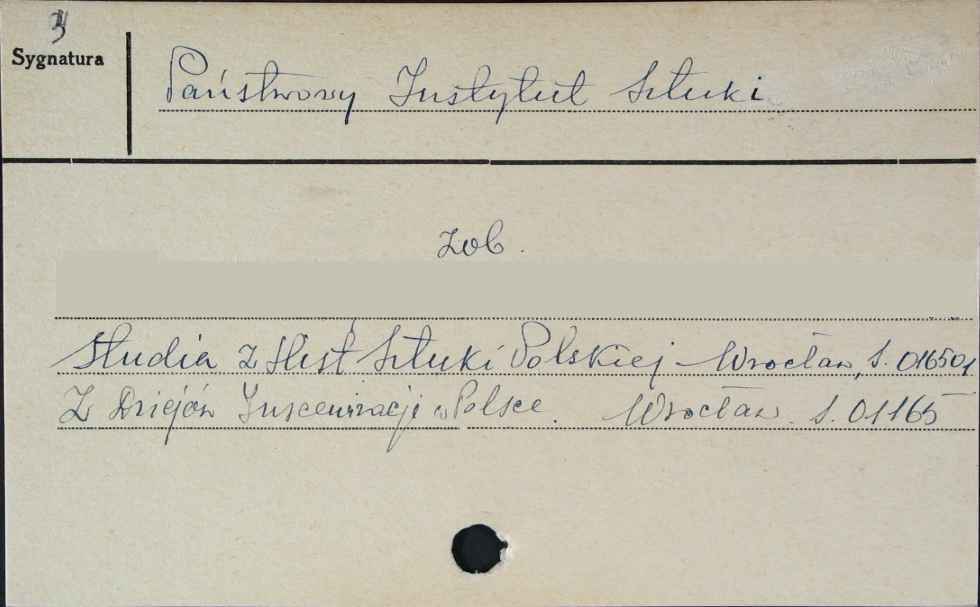 3
Sygnatura
Państwowy Instytut Sztuki
zob.
Studia z Hist Sztuki Polskiej - Wrocław, S. 016501
Z Dziejów Inscenizacji w Polsce. Wrocław. S. 01165